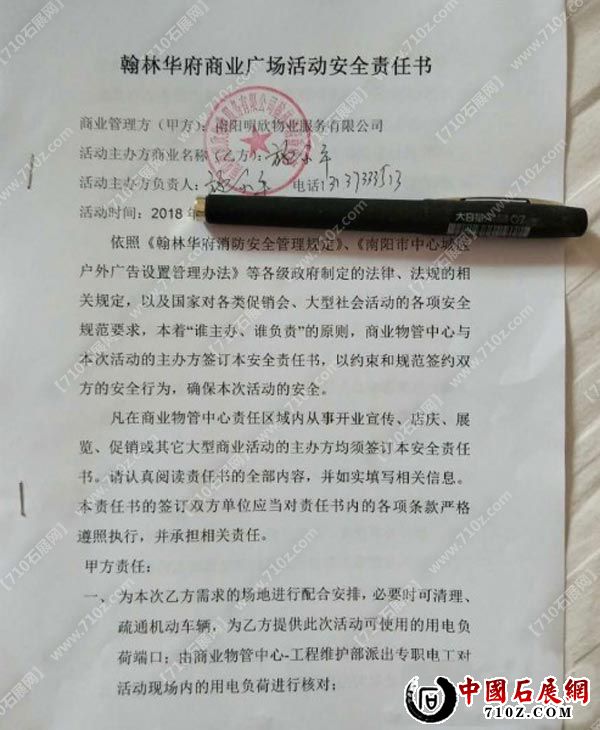 翰林华府商业广场活动安全责任书
商业管理方（甲方）：南阳明欣物业服务有限公司
活动主办方商业名称（乙方）：
活动主办方负责人： 电话13137333513
活动时间：2018年
依照《翰林华府消防安全管理规定》、《南阳市中心城区
户外广告设置管理办法》等各级政府制定的法律、法规的相
关规定，以及国家对各类促销会、大型社会活动的各项安全
规范要求，本着“谁主办、谁负责”的原则，商业物管中心与
本次活动的主办方签订本安全责任书，以约束和规范签约双
方的安全行为，确保本次活动的安全。
凡在商业物管中心责任区域内从事开业宣传、店庆、展
览、促销或其它大型商业活动的主办方均须签订本安全责任
书。请认真阅读责任书的全部内容，并如实填写相关信息。
本责任书的签订双方单位应当对责任书内的各项条款严格
遵照执行，并承担相关责任。
甲方责任：
一、为本次乙方需求的场地进行配合安排，必要时可清理、
疏通机动车辆，为乙方提供此次活动可使用的用电负
荷端口；由商业物管中心-工程维护部派出专职电工对
活动现场内的用电负荷进行核对；
【710石展网】
www.710z.com
中國石展網
710Z.COM